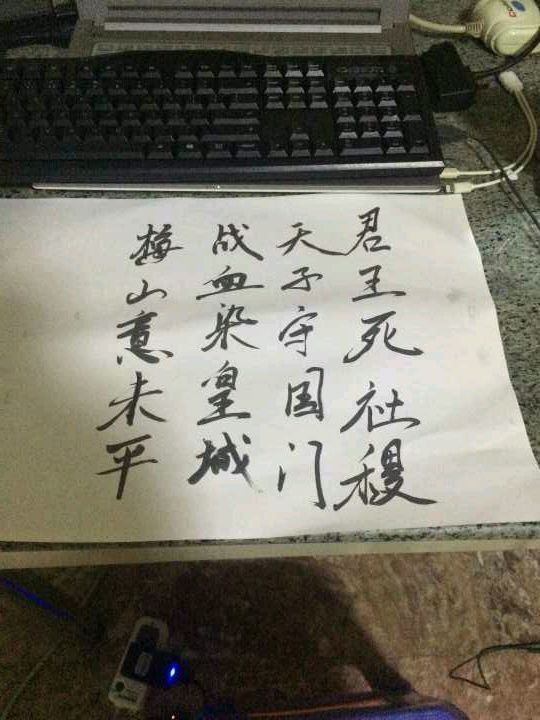 君王死社稷
天子守国门
战血染皇城
梅山意未平